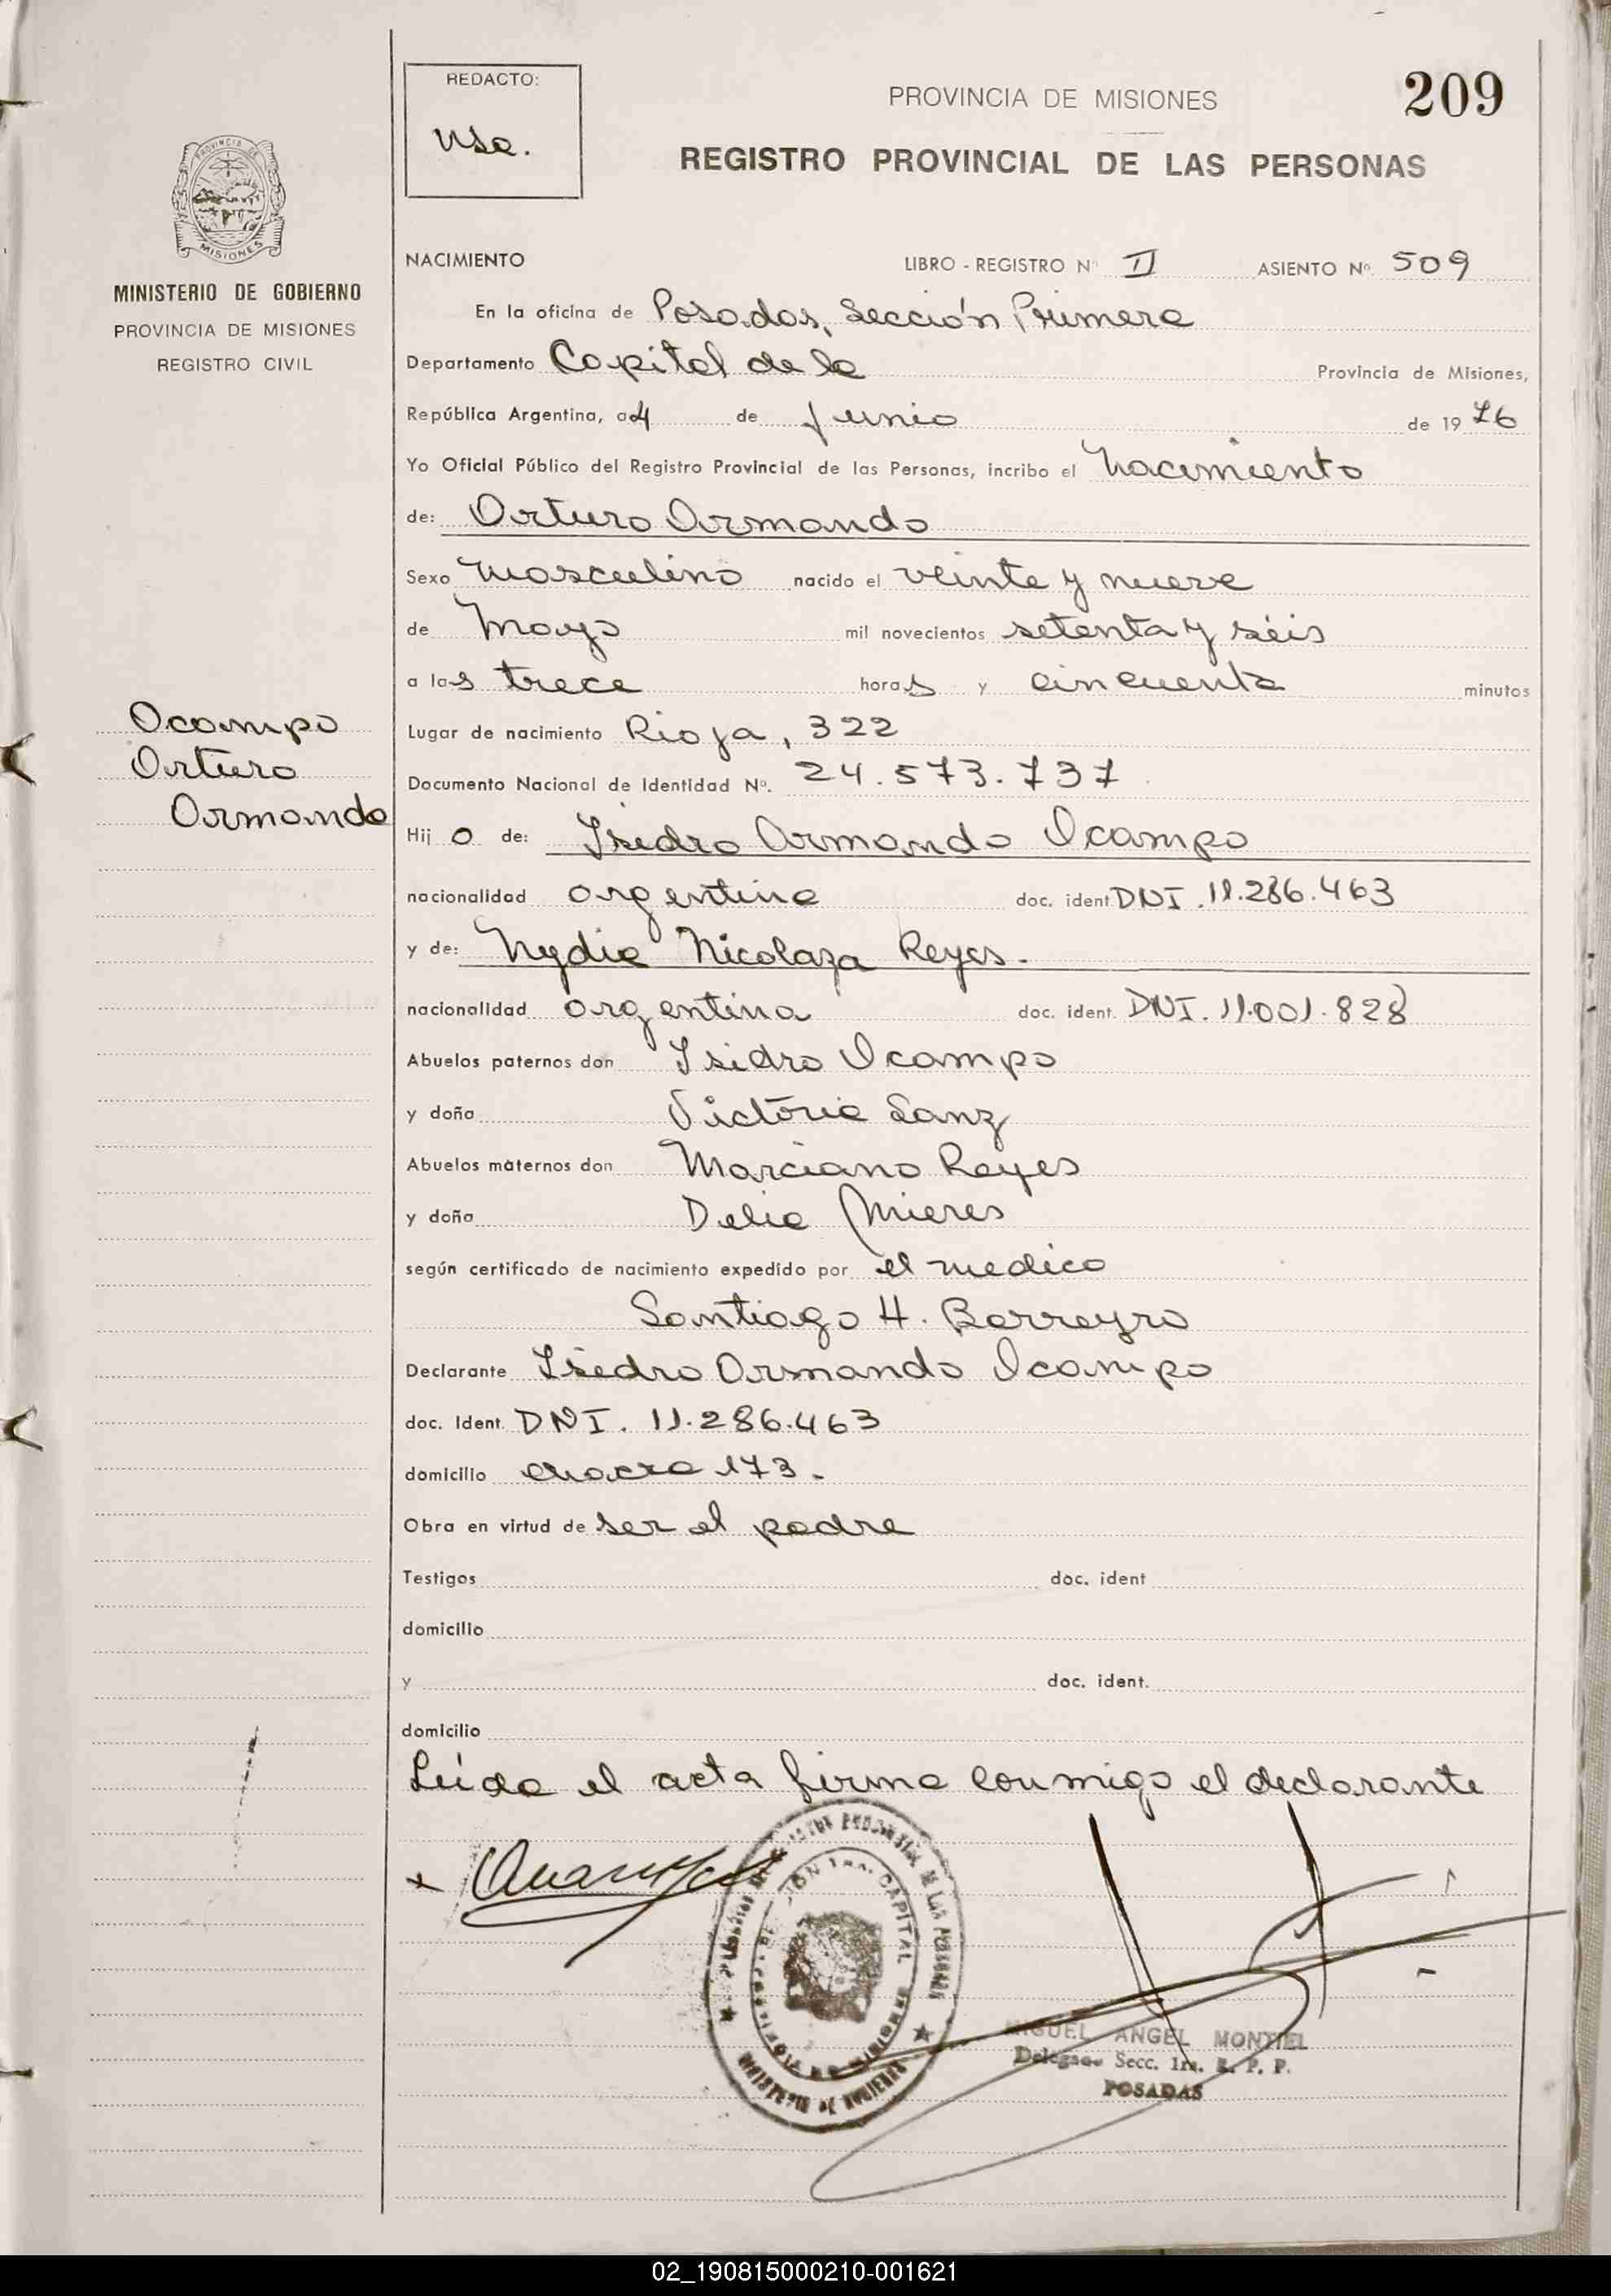 209
REDACTO:
PROVINCIA DE MISIONES
REGISTRO PROVINCIAL DE LAS PERSONAS
PROVINCIA DE
MISIONES
MINISTERIO DE GOBIERNO
PROVINCIA DE MISIONES
REGISTRO CIVIL
NACIMIENTO LIBRO - REGISTRO Nº II ASIENTO Nº 509
En la oficina de Posadas, Sección Primera
Departamento Capital de la Provincia de Misiones,
República Argentina, a 4 de Junio de 1976
Yo Oficial Público del Registro Provincial de las Personas, incribo el nacimiento
de: Arturo Armando
Sexo masculino nacido el veinte y nueve
de Mayo mil novecientos setenta y séis
a las trece horas y cincuenta minutos
Ocampo
Arturo
Armando
Lugar de nacimiento Rioja, 322
Documento Nacional de Identidad Nº. 24.573.737
Hijo de: Isidro Armando Ocampo
nacionalidad argentina doc. ident DNI. 11.286.463
y de: Nydia Nicolaza Reyes.
nacionalidad argentina doc. ident. DNI. 11.001.828
Abuelos paternos don Isidro Ocampo
y doña Victoria Sanz
Abuelos maternos don Marciano Reyes
y doña Delia Mieres
según certificado de nacimiento expedido por el medico
Santiago H. Barreyro
Declarante Isidro Armando Ocampo
doc. Ident. DNI. 11.286.463
domicilio chacra 173.
Obra en virtud de ser el padre
Testigos doc. ident
domicilio
y doc. ident.
domicilio
Leída el acta firma conmigo el declarante
CAPITAL
MIGUEL ANGEL MONTIEL
Delegado Secc. 1ra. R. P. P.
POSADAS
02_190815000210-001621